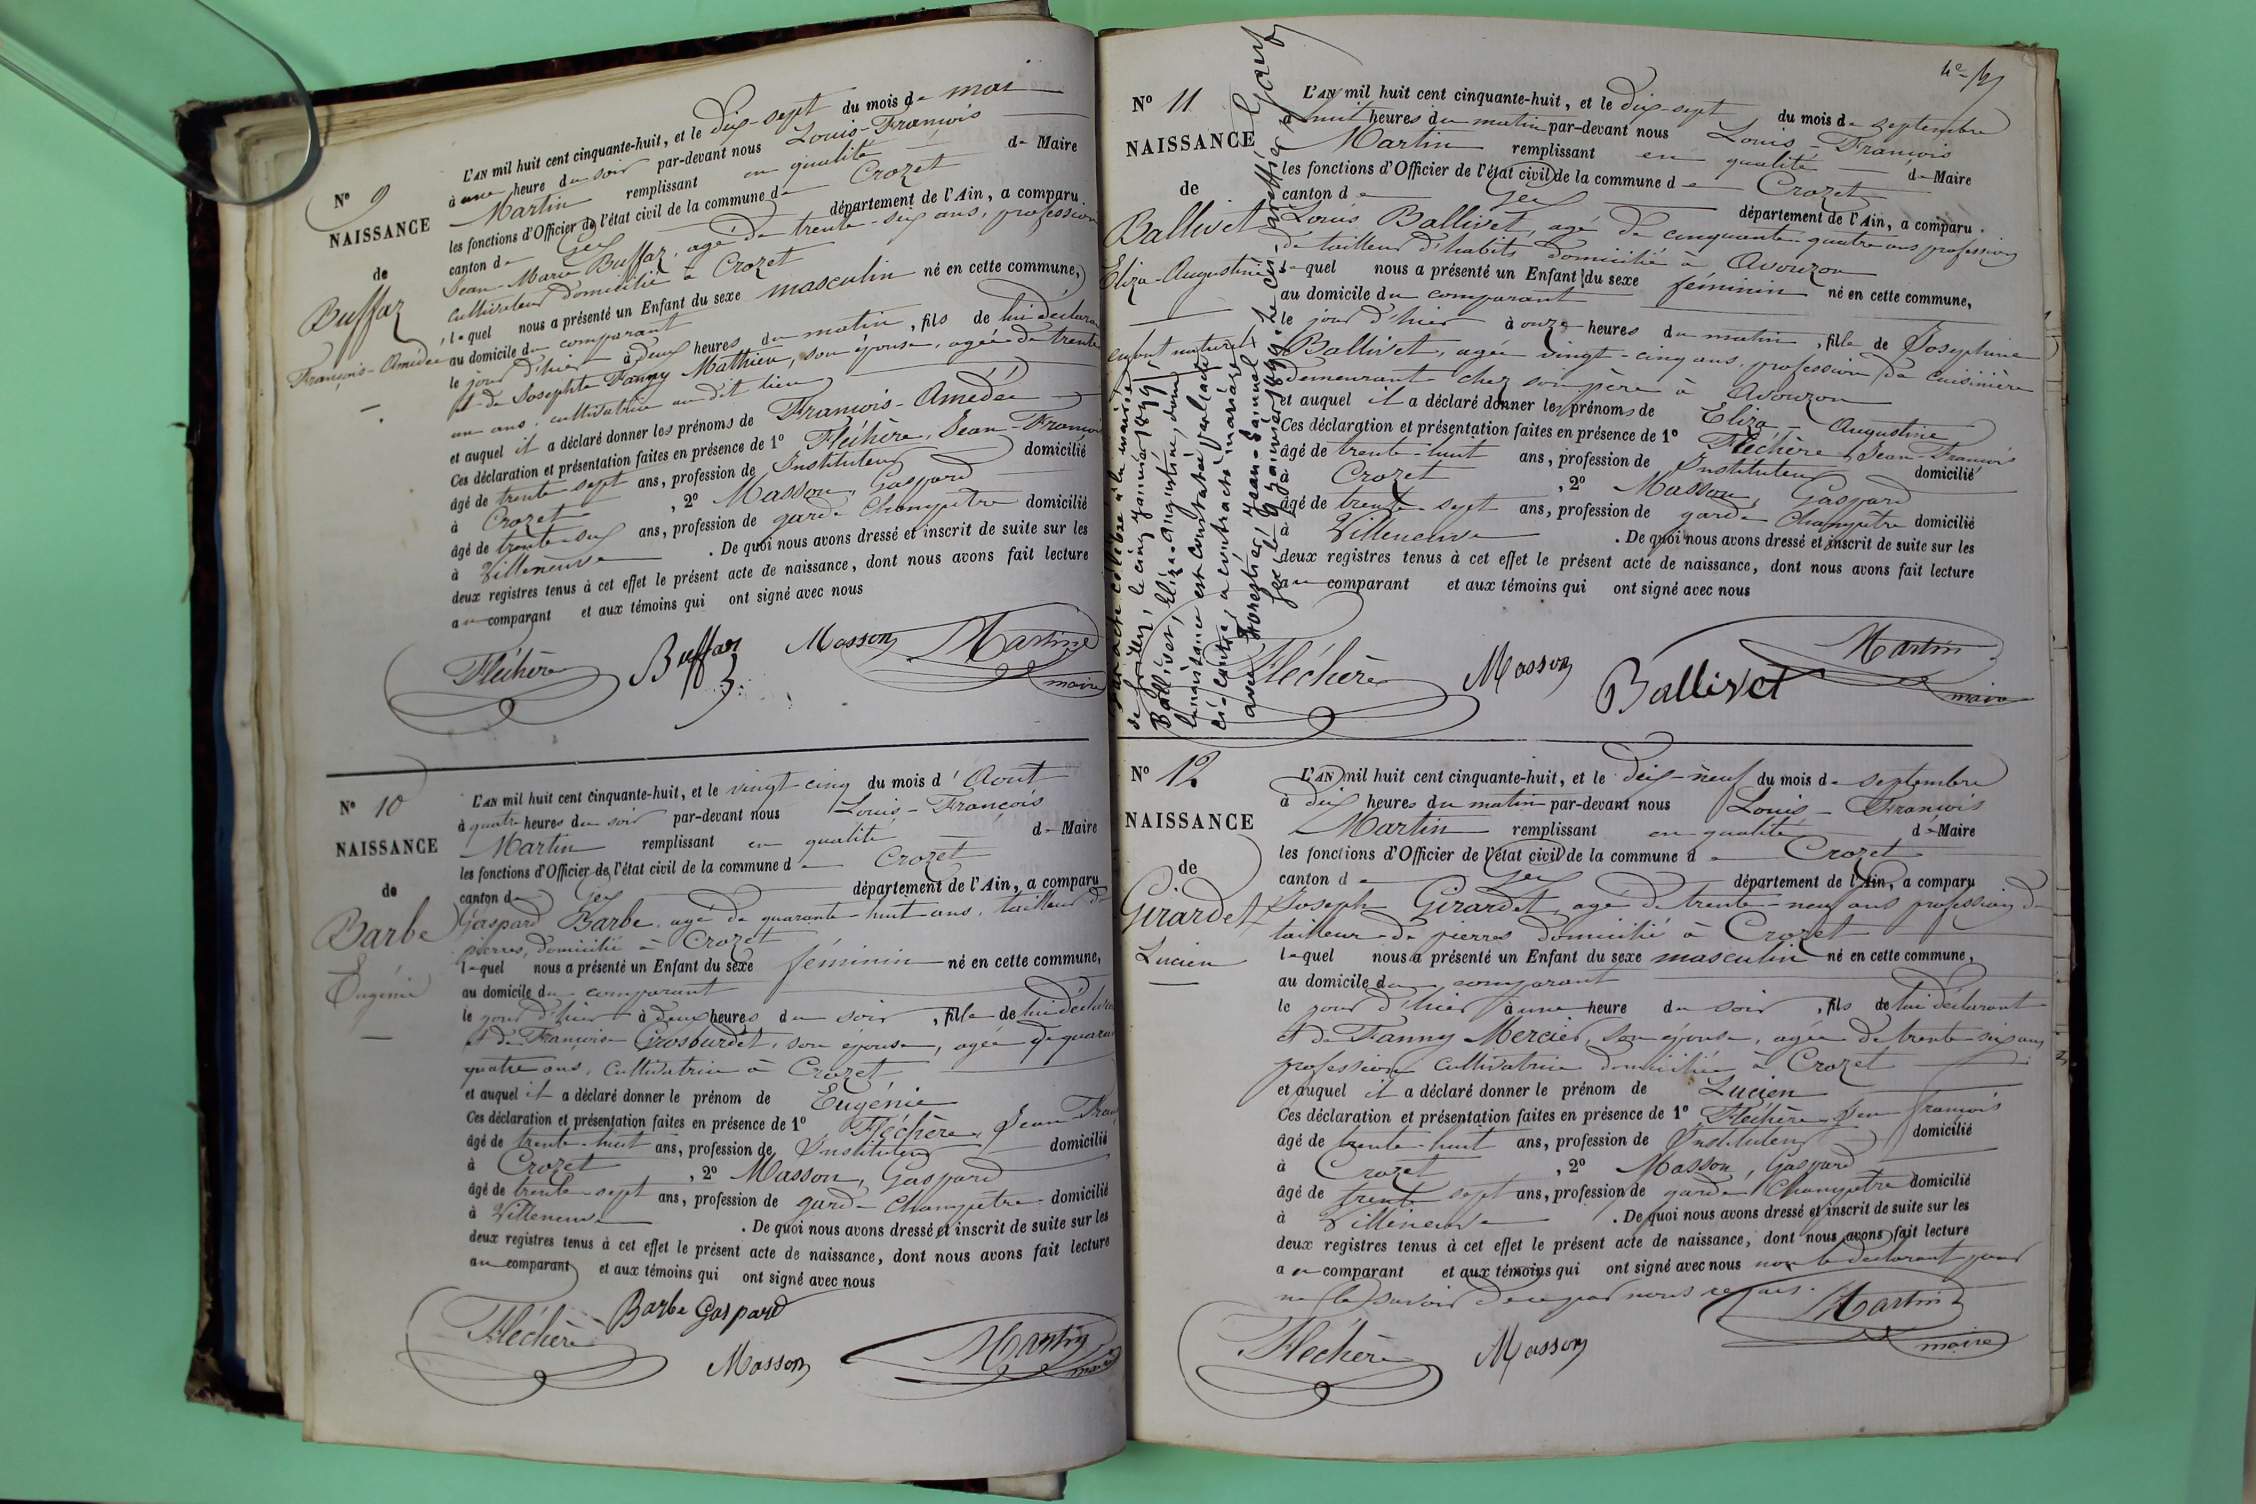 N° 9
NAISSANCE
de
Buffaz
François-Amédée
L'AN mil huit cent cinquante-huit, et le dix-sept du mois de mai
à une heure du soir par-devant nous Louis-François
Martin remplissant en qualité de Maire
les fonctions d'Officier de l'état civil de la commune de Crozet
canton de Gex département de l'Ain, a comparu
Jean-Marie Buffaz, agé de trente-six ans, profession
cultivateur domicilié à Crozet
lequel nous a présenté un Enfant du sexe masculin né en cette commune,
au domicile du comparant
le jour d'hier à deux heures du matin, fils de lui déclarant
et de Josephte Fanny Mathieu, son épouse, agée de trente
un ans, cultivatrice au dit lieu
et auquel il a déclaré donner les prénoms de François-Amédée
Ces déclaration et présentation faites en présence de 1° Fléchère, Jean-François
âgé de trente sept ans, profession de Instituteur domicilié
à Crozet, 2° Masson, Gaspard
âgé de trente-six ans, profession de garde champêtre domicilié
à Villeneuve. De quoi nous avons dressé et inscrit de suite sur les
deux registres tenus à cet effet le présent acte de naissance, dont nous avons fait lecture
au comparant et aux témoins qui ont signé avec nous
Fléchère Buffaz Masson Martin
maire
N° 10
NAISSANCE
de
Barbe
Eugénie
L'AN mil huit cent cinquante-huit, et le vingt cinq du mois d'Aout
à quatre heures du soir par-devant nous Louis-François
Martin remplissant en qualité de Maire
les fonctions d'Officier de l'état civil de la commune de Crozet
canton de Gex département de l'Ain, a comparu
Gaspard Barbe, agé de quarante-huit ans, tailleur de
pierres, domicilié à Crozet
lequel nous a présenté un Enfant du sexe féminin né en cette commune,
au domicile du comparant
le jour d'hier à deux heures du soir, fille de lui déclarant
et de Françoise Grosburdet, son épouse, agée de quarante
quatre ans, cultivatrice à Crozet
et auquel il a déclaré donner le prénom de Eugénie
Ces déclaration et présentation faites en présence de 1° Fléchère, Jean Fran
âgé de trente-huit ans, profession de Instituteur domicilié
à Crozet, 2° Masson, Gaspard
âgé de trente-sept ans, profession de garde champêtre domicilié
à Villeneuve. De quoi nous avons dressé et inscrit de suite sur les
deux registres tenus à cet effet le présent acte de naissance, dont nous avons fait lecture
au comparant et aux témoins qui ont signé avec nous
Fléchère Barbe Gaspard
Masson Martin maire
N° 11
NAISSANCE
de
Ballivet
Eliza-Augustine
enfant naturel
Par acte célébré à la mairie
de le cinq janvier 1899,
Ballivet, Eliza-Augustine, dont
la naissance est constatée par l'acte
ci-contre, a contracté mariage
avec Forestier, Jean-Samuel
Gex, le 9 janvier 1899. Le
L'AN mil huit cent cinquante-huit, et le dix-sept du mois de septembre
à huit heures du matin par-devant nous Louis-François
Martin remplissant en qualité de Maire
les fonctions d'Officier de l'état civil de la commune de Crozet
canton de Gex département de l'Ain, a comparu
Louis Ballivet, agé de cinquante-quatre ans profession
de tailleur d'habits domicilié à Avouzon
lequel nous a présenté un Enfant du sexe féminin né en cette commune,
au domicile du comparant
le jour d'hier à onze heures du matin, fille de Josephine
Ballivet, agée vingt-cinq ans, profession de cuisinière
demeurant chez son père à Avouzon
et auquel il a déclaré donner les prénoms de Eliza-Augustine
Ces déclaration et présentation faites en présence de 1° Fléchère, Jean-François
âgé de trente-huit ans, profession de Instituteur domicilié
à Crozet, 2° Masson, Gaspard
âgé de trente-sept ans, profession de garde champêtre domicilié
à Villeneuve. De quoi nous avons dressé et inscrit de suite sur les
deux registres tenus à cet effet le présent acte de naissance, dont nous avons fait lecture
au comparant et aux témoins qui ont signé avec nous
Fléchère Masson Ballivet Martin
maire
N° 12
NAISSANCE
de
Girardet
Lucien
L'AN mil huit cent cinquante-huit, et le dix-neuf du mois de septembre
à dix heures du matin par-devant nous Louis-François
Martin remplissant en qualité de Maire
les fonctions d'Officier de l'état civil de la commune de Crozet
canton de Gex département de l'Ain, a comparu
Joseph Girardet, agé de trente-neuf ans profession de
tailleur de pierres domicilié à Crozet
lequel nous a présenté un Enfant du sexe masculin né en cette commune,
au domicile du comparant
le jour d'hier à une heure du soir, fils de lui déclarant
et de Fanny Mercier, son épouse, agée de trente-six ans
profession cultivatrice domiciliée à Crozet
et auquel il a déclaré donner le prénom de Lucien
Ces déclaration et présentation faites en présence de 1° Fléchère Jean François
âgé de trente-huit ans, profession de Instituteur domicilié
à Crozet, 2° Masson, Gaspard
âgé de trente sept ans, profession de garde champêtre domicilié
à Villeneuve. De quoi nous avons dressé et inscrit de suite sur les
deux registres tenus à cet effet le présent acte de naissance, dont nous avons fait lecture
au comparant et aux témoins qui ont signé avec nous non le déclarant pour
ne le savoir de ce par nous requis.
Fléchère Masson Martin
maire